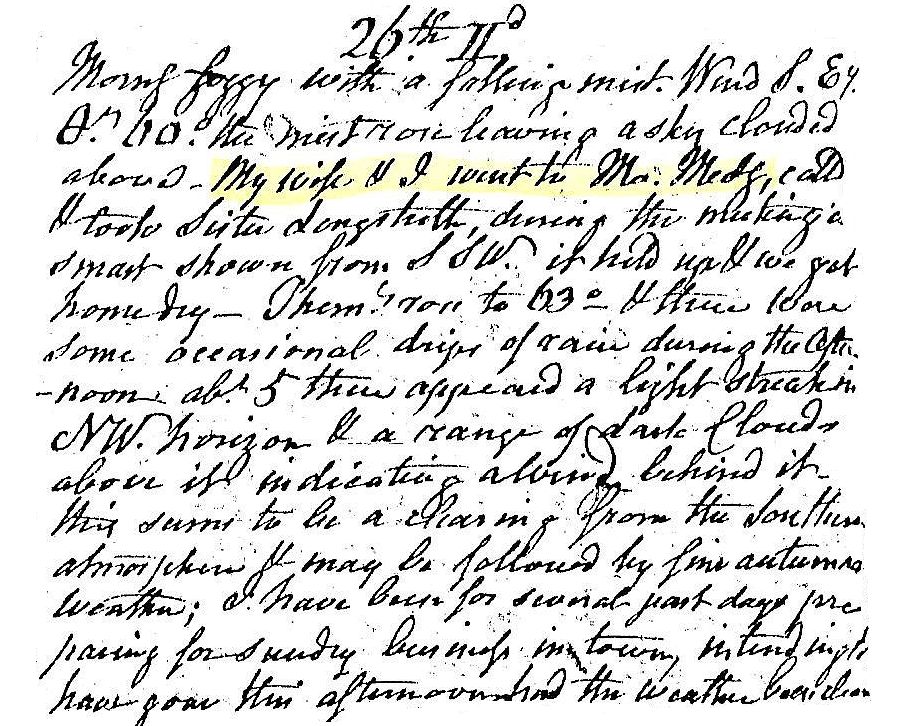 26th II d
Morng foggy with a falling mist. Wind S. Ey.
60° the mist rose leaving a sky clouded
above - My wife & I went to Mo: Meetg, calld
& took Sister Longstreth, during the meeting a
smart shower from S SW. it held up & we got
home dry - Therm.r rose to 63° & there were
some occasional drips of rain during the after
-noon. abt 5 there appeared a light streak in
NW. horizon & a range of dark Clouds
above it indicating a wind behind it -
this seems to be a clearing from the southern
atmosphere & may be followed by fine autumn
weather; I have been for several past days pre
paring for sundry business in town, intending to
have gone this afternoon had the weather been clear